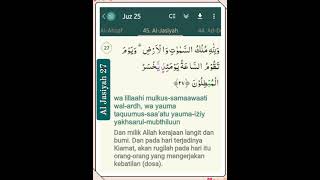 Juz 25
45. Al-Jasiyah
27
وَلِلّٰهِ مُلْكُ السَّمٰوٰتِ وَالْاَرْضِۗ وَيَوْمَ
تَقُوْمُ السَّاعَةُ يَوْمَىِٕذٍ يَّخْسَرُ
الْمُبْطِلُوْنَ ﴿٢٧﴾
Al Jasiyah 27
wa lillaahi mulkus-samaawaati
wal-ardh, wa yauma
taquumus-saa'atu yauma-iziy
yakhsarul-mubthiluun
Dan milik Allah kerajaan langit dan
bumi. Dan pada hari terjadinya
Kiamat, akan rugilah pada hari itu
orang-orang yang mengerjakan
kebatilan (dosa).